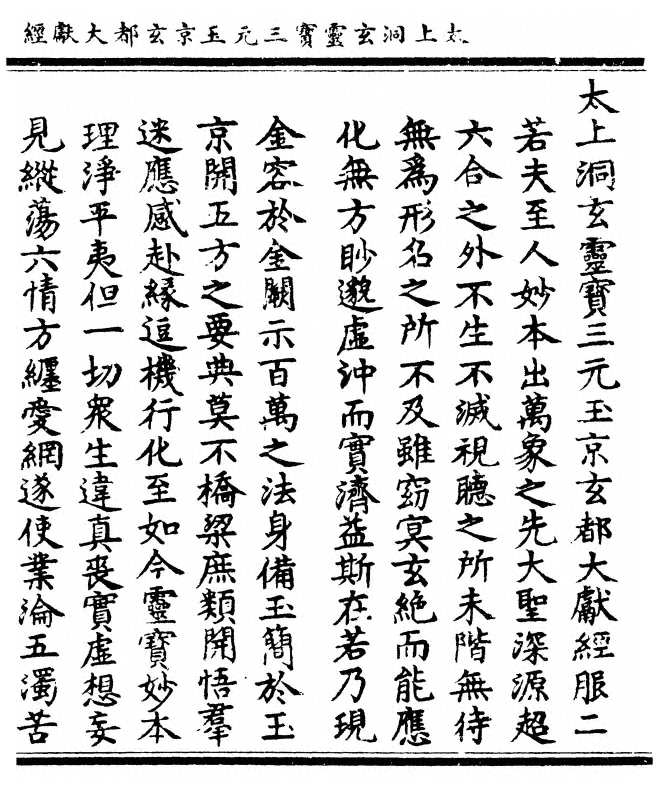 太上洞玄靈寶三元玉京玄都大獻經
太上洞玄靈寶三元玉京玄都大獻經服二
若夫至人妙本出萬象之先大聖深源超
六合之外不生不滅視聽之所未階無待
無為形名之所不及雖窈冥玄絕而能應
化無方眇邈虛沖而實濟益斯在若乃現
金容於金闕示百萬之法身備玉簡於玉
京開五方之要典莫不橋梁庶類開悟羣
迷應感赴緣逗機行化至如今靈寶妙本
理淨平夷但一切眾生違真喪實虛想妄
見縱蕩六情方纏愛網遂使業淪五濁苦